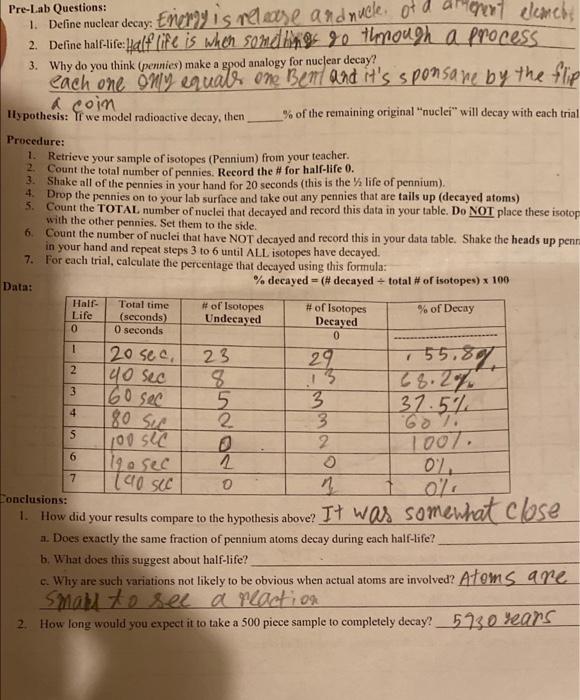 Pre-Lab Questions:
1. Define nuclear decay: Energy is release and nucle. of a different elements
2. Define half-life: Half life is when somethings go through a process
3. Why do you think (pennies) make a good analogy for nuclear decay?
each one only equals one Bent and it's sponsane by the flip
a coin
Hypothesis: If we model radioactive decay, then ______% of the remaining original "nuclei" will decay with each trial
Procedure:
1. Retrieve your sample of isotopes (Pennium) from your teacher.
2. Count the total number of pennies. Record the # for half-life 0.
3. Shake all of the pennies in your hand for 20 seconds (this is the ½ life of pennium).
4. Drop the pennies on to your lab surface and take out any pennies that are tails up (decayed atoms)
5. Count the TOTAL number of nuclei that decayed and record this data in your table. Do NOT place these isotop
with the other pennies. Set them to the side.
6. Count the number of nuclei that have NOT decayed and record this in your data table. Shake the heads up penn
in your hand and repeat steps 3 to 6 until ALL isotopes have decayed.
7. For each trial, calculate the percentage that decayed using this formula:
% decayed = (# decayed ÷ total # of isotopes) x 100
Data:
Half-Life Total time (seconds) # of Isotopes Undecayed # of Isotopes Decayed % of Decay
0 0 seconds 0 --------------------
1 20 sec. 23 29 55.8%
2 40 sec 8 13 68.2%
3 60 sec 5 3 37.5%
4 80 sec 2 3 60%
5 100 sec 0 2 100%.
6 120 sec 0 0%
7 140 sec 0 0%
Conclusions:
1. How did your results compare to the hypothesis above? It was somewhat close
a. Does exactly the same fraction of pennium atoms decay during each half-life?
b. What does this suggest about half-life?
c. Why are such variations not likely to be obvious when actual atoms are involved? Atoms are
small to see a reaction
2. How long would you expect it to take a 500 piece sample to completely decay? 5730 years